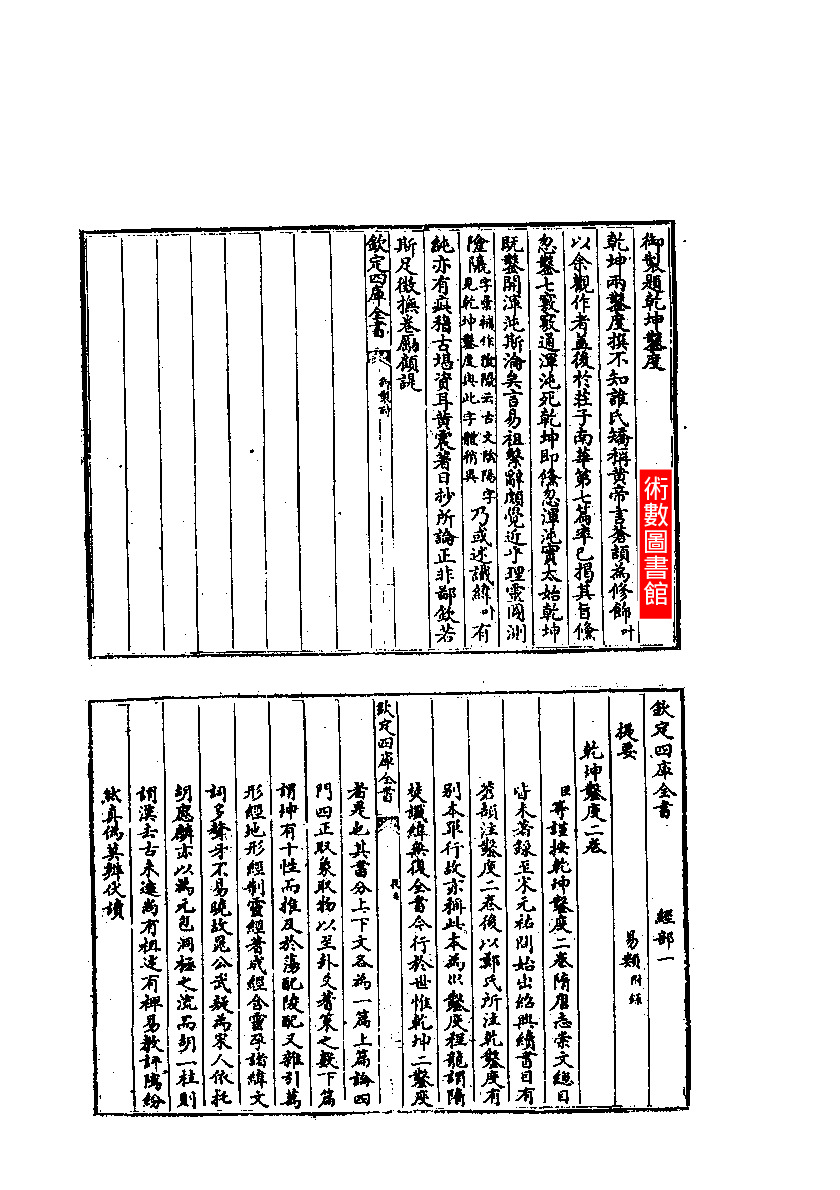 御製題乾坤鑿度
乾坤兩鑿度撰不知誰氏矯稱黄帝言蒼頡為修飾叶
以余觀作者蓋後於莊子南華第七篇率已揭其旨儵
忽鑿七竅竅通渾沌死乾坤即儵忽渾沌實太始乾坤
既鑿開渾沌斯淪矣言易祖繫辭頗覺近乎理靈圖測
陰陽字彙補作陰陽云古文陰陽字
見乾坤鑿度與此字體稍異乃或述讖緯叶有
純亦有疵稽古堪資耳黄震著日抄所論正非鄙欽若
斯足徵撫卷勵顧諟
欽定四庫全書
御製詩
術數圖書館
欽定四庫全書 經部一
提要 易類附錄
乾坤鑿度二卷
臣等謹按乾坤鑿度二卷隋唐志崇文總目
皆未著録至宋元祐間始出紹興續書目有
蒼頡注鑿度二卷後以鄭氏所注乾鑿度有
別本單行故亦稱此本為坤鑿度程龍謂隋
焚讖緯無復全書今行於世惟乾坤二鑿度
欽定四庫全書
提要
者是也其書分上下文各為一篇上篇論四
門四正取象取物以至卦爻蓍策之數下篇
謂坤有十性而推及於蕩配陵配又雜引萬
形經地形經制靈經蓍成經含靈孕諸緯文
詞多聱牙不易曉故晁公武疑為宋人依托
胡應麟亦以為元包洞極之流而胡一桂則
謂漢去古未遠尚有祖述有裨易教評隲紛
紜真偽莫辨伏讀